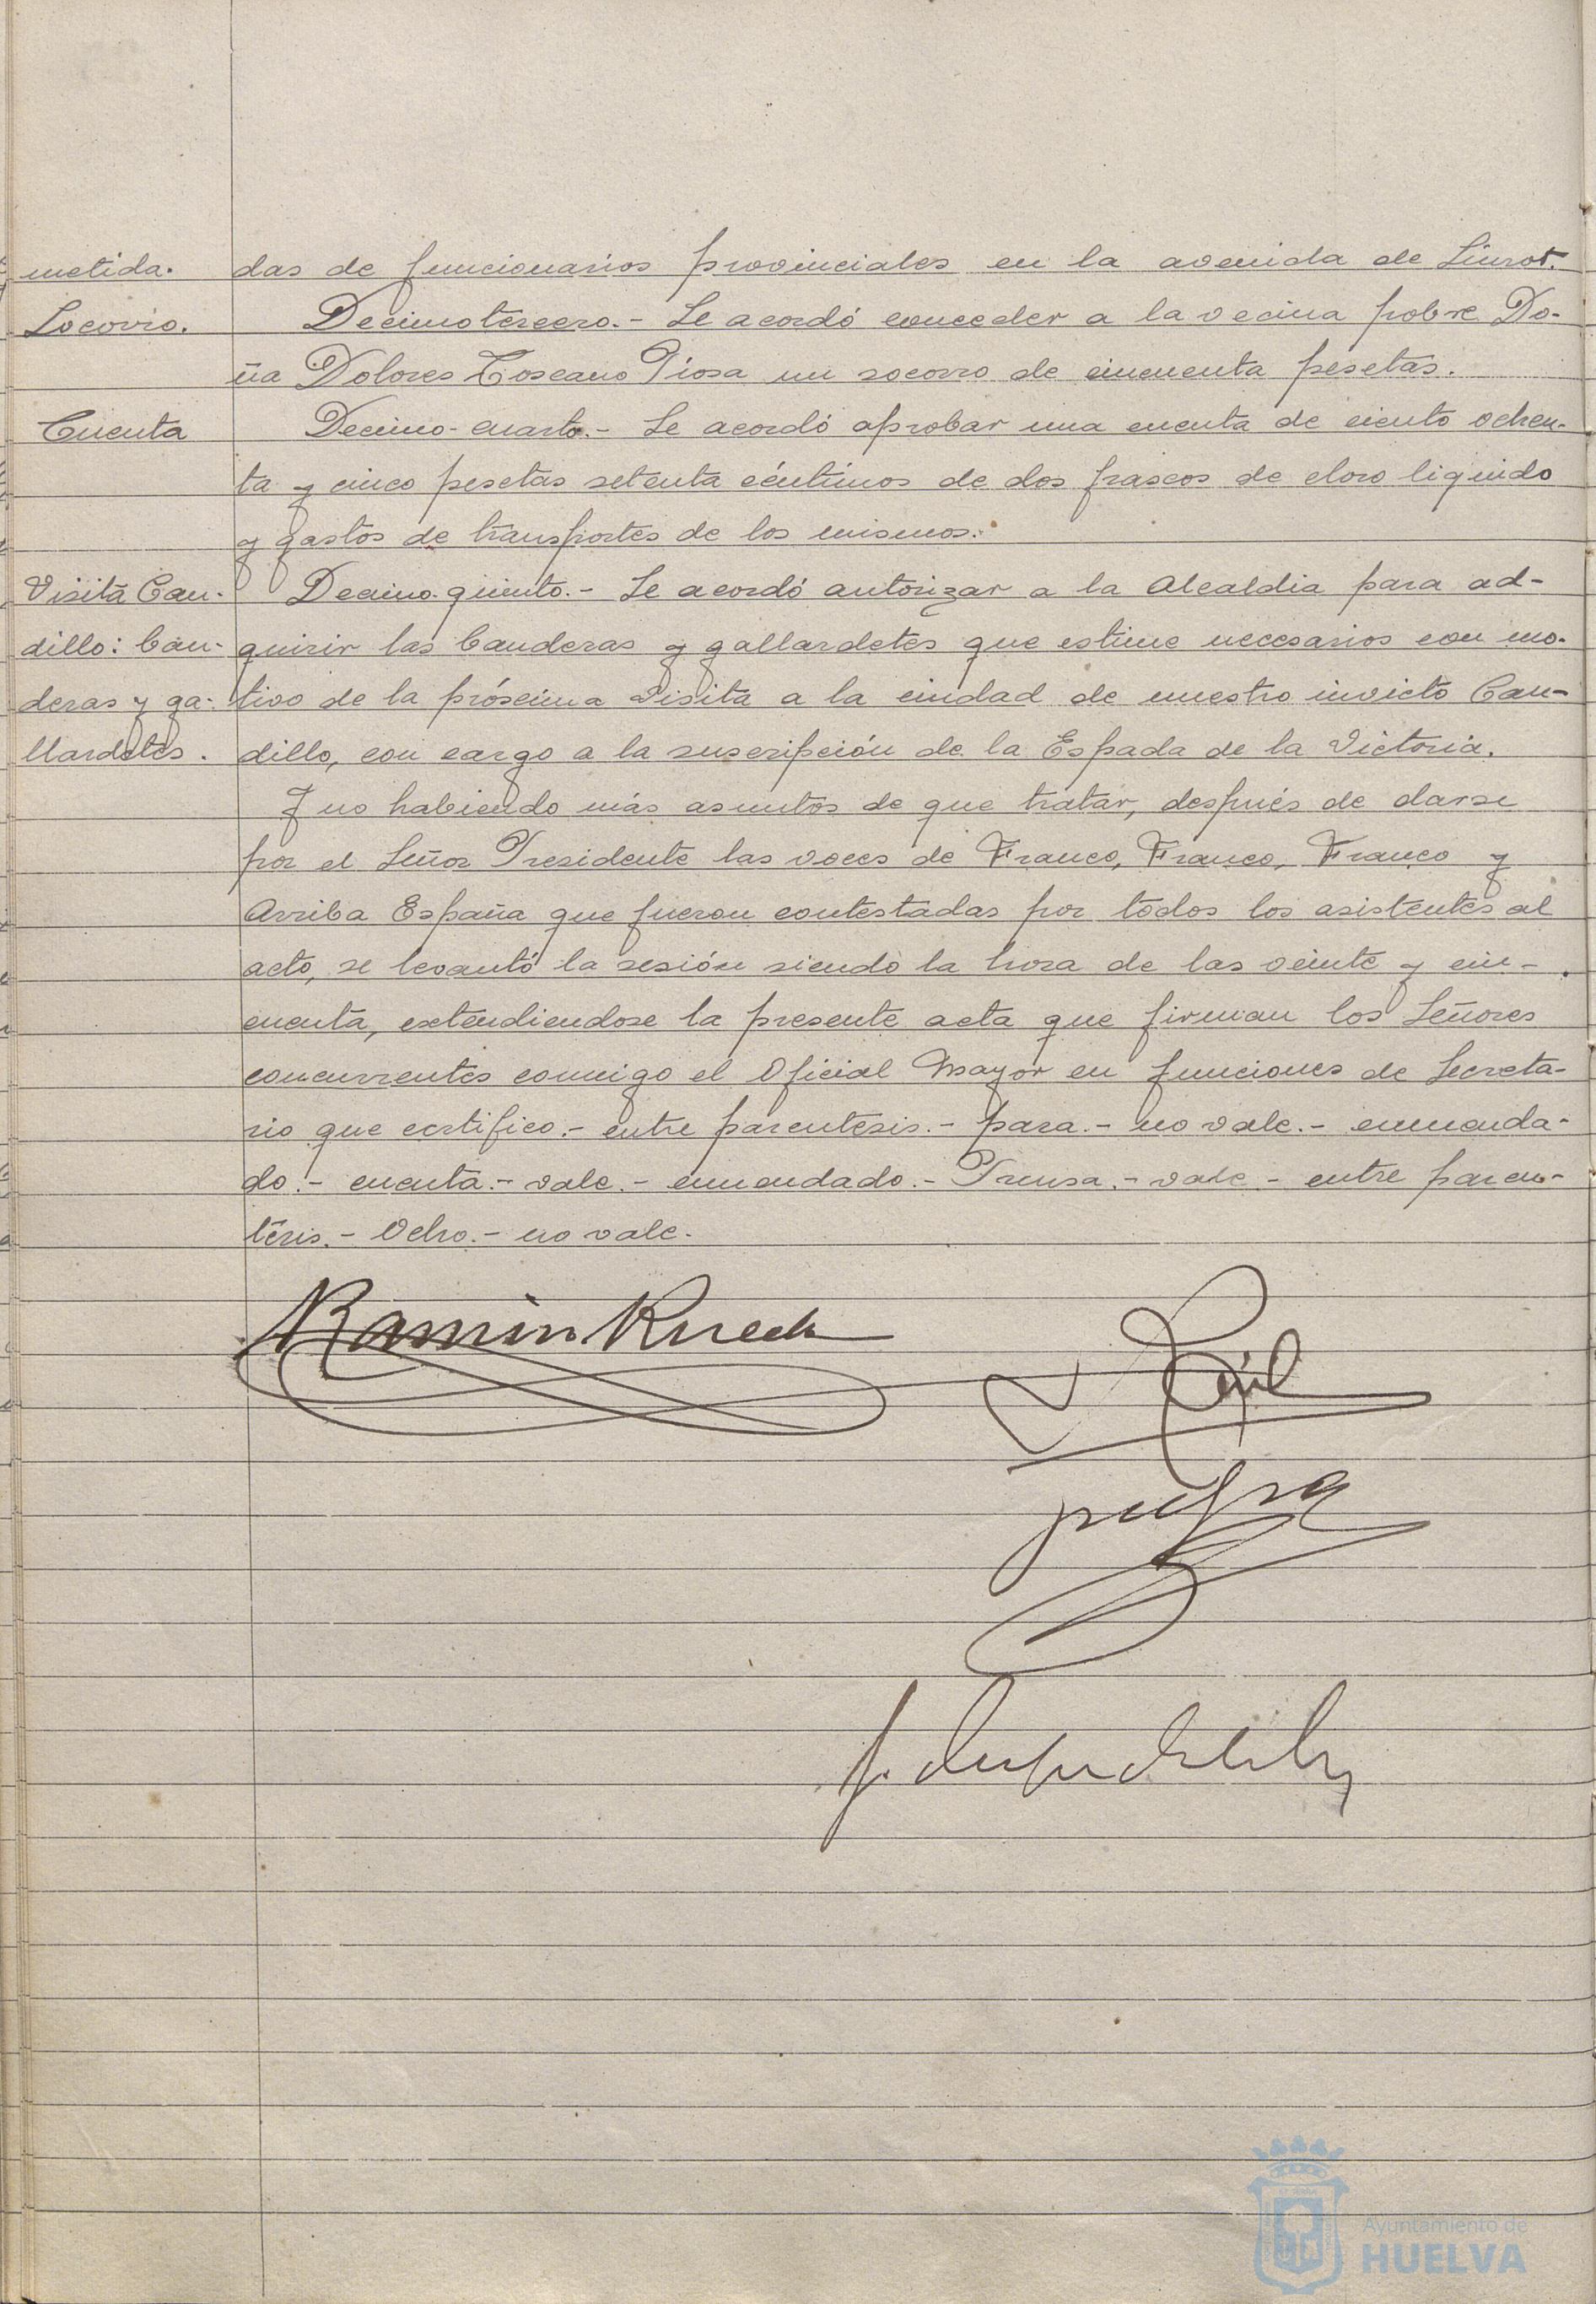 metida.
das de funcionarios provinciales en la avenida de Linrot.
Socorro.
Decimotercero.- Se acordó conceder a la vecina pobre Do-
ña Dolores Toscano Piosa un socorro de cincuenta pesetas.
Cuenta
Decimo-cuarto.- Se acordó aprobar una cuenta de ciento ochen-
ta y cinco pesetas setenta céntimos de dos frascos de cloro liquido
y gastos de transportes de los mismos.
Visita Cau-
dillo: ban-
deras y ga-
llardetes.
Decimo-quinto.- Se acordó autorizar a la Alcaldia para ad-
quirir las banderas y gallardetes que estime necesarios con mo-
tivo de la próxima visita a la ciudad de nuestro invicto Cau-
dillo, con cargo a la suscripción de la Espada de la Victoria.
Y no habiendo más asuntos de que tratar, después de darse
por el Señor Presidente las voces de Franco, Franco, Franco y
Arriba España que fueron contestadas por todos los asistentes al
acto, se levantó la sesión siendo la hora de las veinte y cin-
cuenta, extendiendose la presente acta que firman los Señores
concurrentes conmigo el Oficial Mayor en funciones de Secreta-
rio que certifico.- entre parentesis.- para.- no vale.- enmenda-
do.- cuenta.- vale.- enmendado.- Prensa.- vale.- entre paren-
tesis.- Ocho.- no vale.
Ramón Rueda
Ayuntamiento de
HUELVA